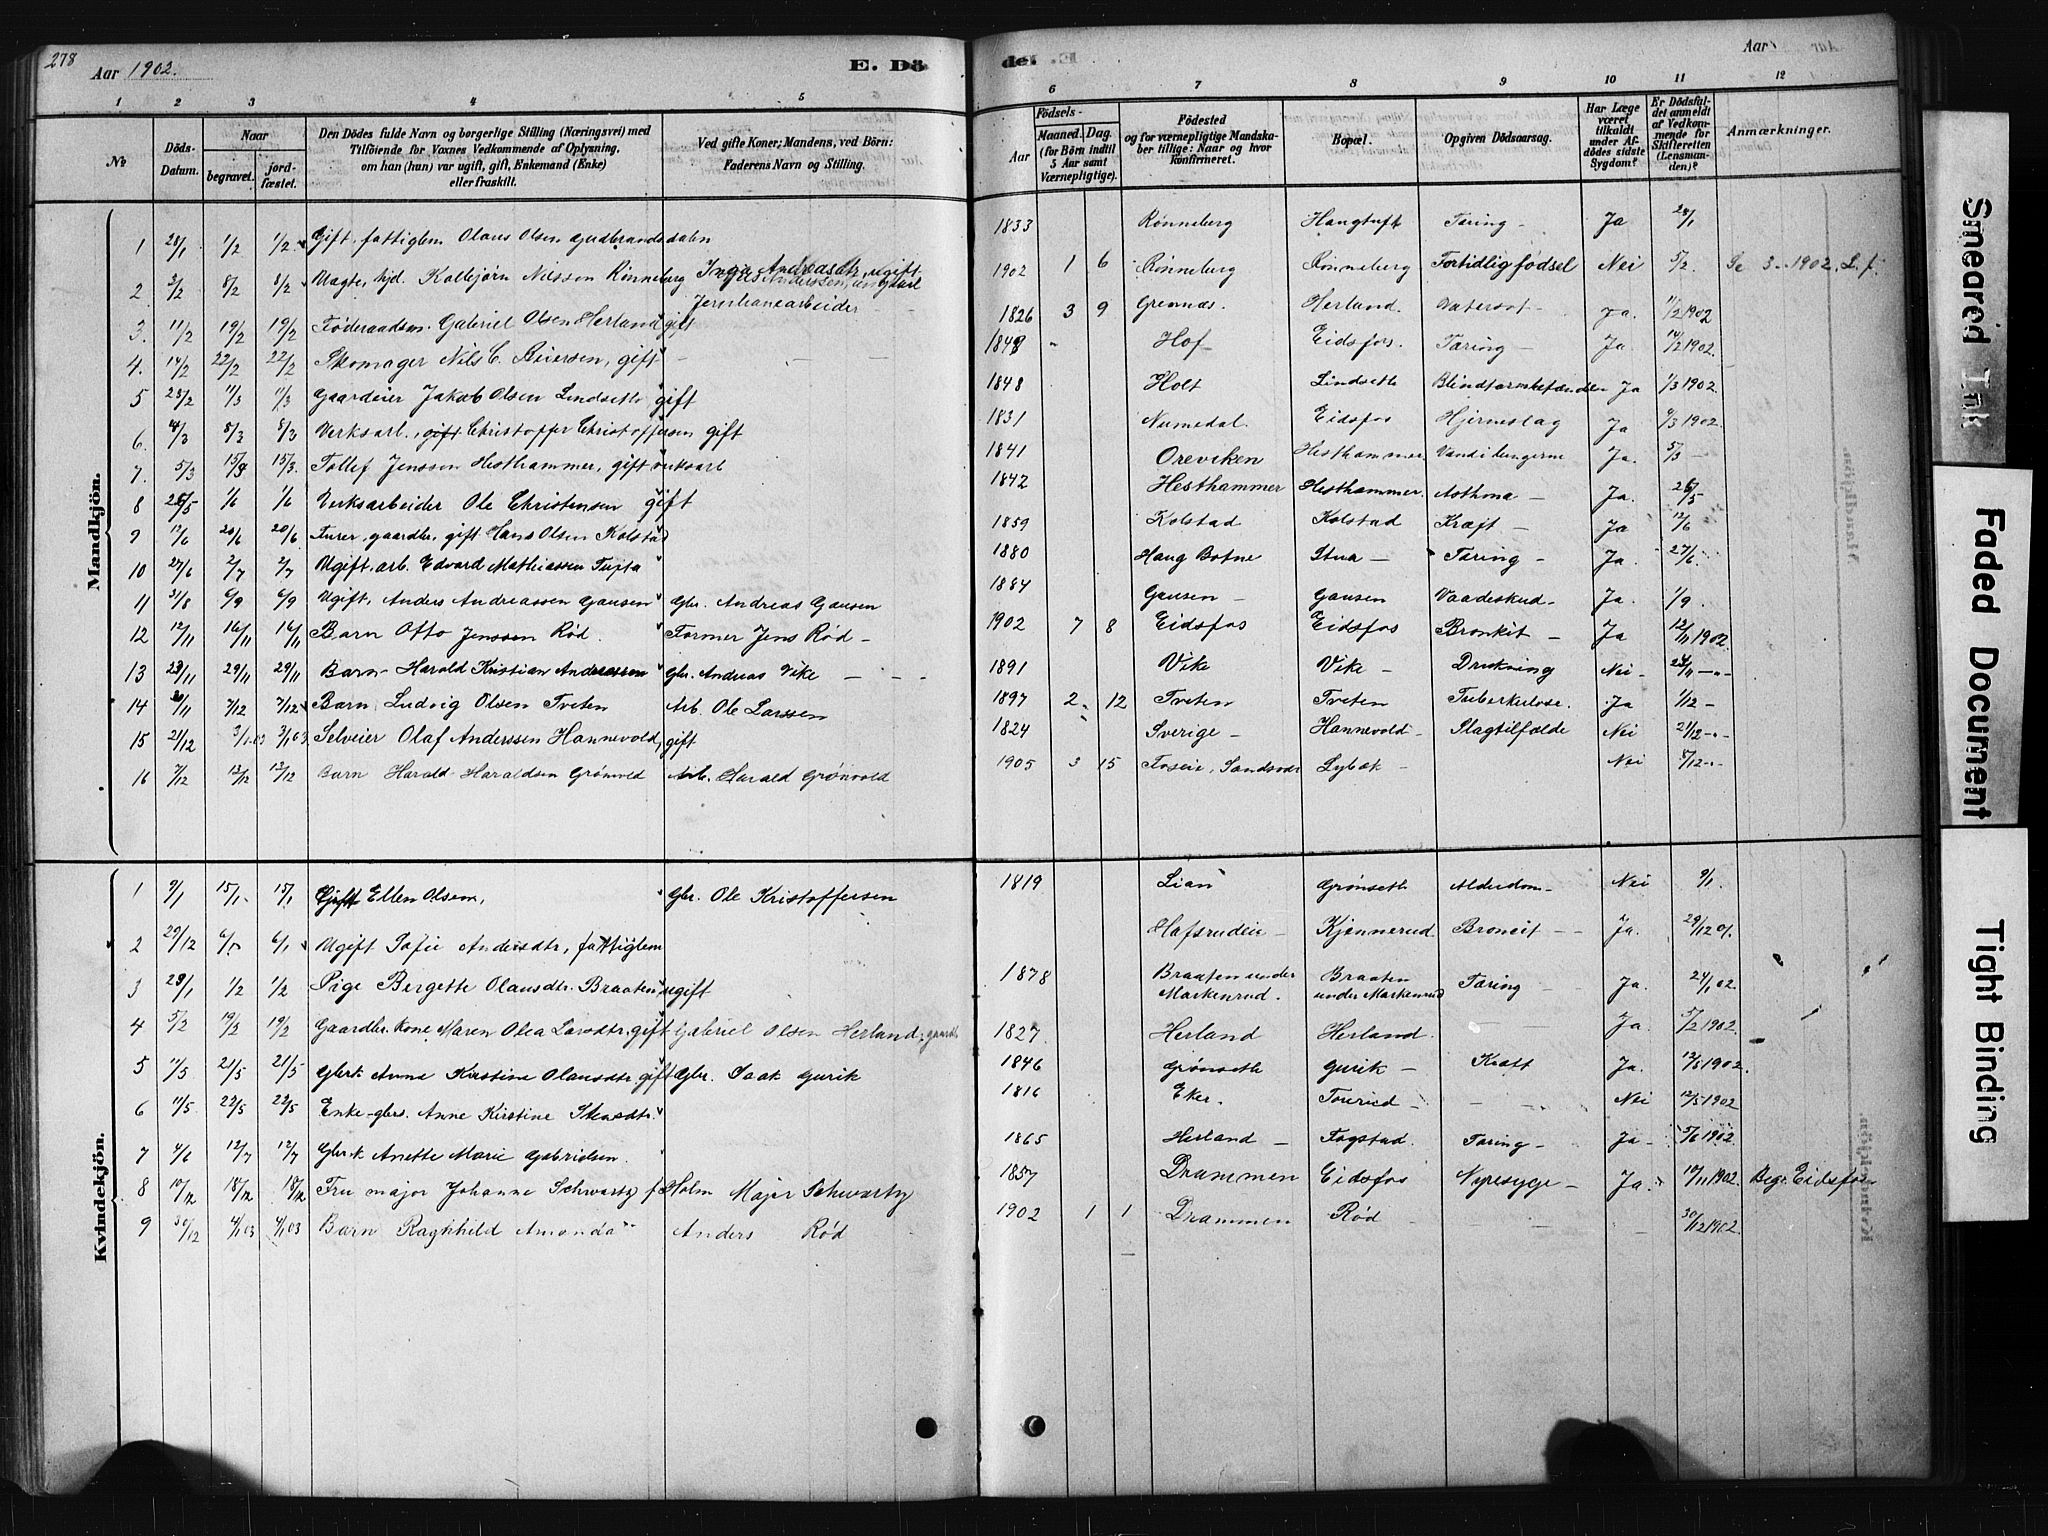 278
Aar 1902.
E. Dö
de. E.
Aar
1 2 3 4 5 6 7 8 9 10 11 12
No
Döds-Datum.
Naar
begravet.
jord-fæstet.
Den Dödes fulde Navn og borgerlige Stilling (Næringsvei) med
Tilföiende for Voxnes Vedkommende af Oplysning,
om han (hun) var ugift, gift, Enkemand (Enke)
eller fraskilt.
Ved gifte Koner; Mandens, ved Börn:
Faderens Navn og Stilling.
Födsels-
Aar
Maaned. Dag.
(for Börn indtil
5 Aar samt
Værnepligtige).
Födested
og for værnepligtige Mandska-
ber tillige: Naar og hvor
konfirmeret.
Bopæl.
Opgiven Dödsaarsag.
Har Læge
været
tilkaldt
under Af-
dödes sidste
Sygdom?
Er Dödsfal-
det anmeldt
af Vedkom-
mende for
Skifteretten
(Lensman-
den)?
Anmærkninger.
Mandkjön.
1 28/1 1/2 1/2 Gift, fattiglem Olaus Olsen Gudbrandsdalen 1833 Rønneberg Haugtuft Tæring - Ja 28/1
2 3/2 8/2 8/2 Uægte, hjd. Kallejørn Nilsson Rønneberg Inga Andreasdtr, ugift Jernbanearbeider 1902 1 6 Rønneberg Rønneberg Fortidlig fødsel Nei 5/2. 3 1902, L. f.
3. 11/2 19/2 19/2 Føderaadsm. Gabriel Olsen Herland gift 1826 3 9 Grennæs. Herland. Vatersot - Ja. 11/2 1902
4. 14/2 22/2 22/2 Skomager Nils C. Beiersen, gift - - - 1848 Hof Eidsfos. Tæring - Ja. 14/2 1902.
5 23/2 1/3 1/3 Gaardeier Jakob Olsen Lindseth gift 1848 Holt Lindseth Blindtarmbetændelse Ja 1/3 1902
6. 4/3 8/3 8/3 Verksarb. Christoffer Christoffersen gift 1831 Numedal. Eidsfos Hjerneslag Ja 6/3 1902.
7. 5/3 15/3 15/3. Tollef Jensson Hesthammer, gift verksarb 1841 Oreviken Hesthammer Vand i lungerne Ja. 5/3 -
8 26/5 1/6 1/6 Verksarbeider Ole Christensen gift 1842 Hesthammer Hesthammer. Asthma - Ja. 26/5
9 12/6 20/6 20/6 Furer, gaardbr, gift Hans Olsen Kolstad 1859 Kolstad Kolstad Kræft - Ja 12/6
10 27/6 2/7 2/7 Ugift, arb. Edvard Mathiassen Tufta 1880 Haug Botne Stua - Tæring - Ja. 27/6
11 31/8 6/9 6/9 Ugift, Anders Andreassen Gausen Gbr. Andreas Gausen 1884 Gausen - Gausen Vaadeskud - Ja. 1/9.
12 12/11 16/11 16/11 Barn Otto Jenssen Rød. Former Jens Rød - 1902 7 8 Eidsfos Eidsfos Bronkit - Ja 12/11 1902.
13 23/11 29/11 29/11 Barn - Harald Kristian Andreassen Gbr. Andreas Vike - - - 1891 Vike Vike - Drukning Nei - 24/11 - -
14 30/11 7/12 7/12 Barn Ludvig Olsen Tveten Arb. Ole Larssen 1897 2 12 Tveten Tveten Tuberkulose. Ja 1/12 -
15 21/12 3/1.03 3/1.03. Selveier Olaf Anderssen Hannevold, gift 1824 Sverige - Hannevold - Slagtilfælde Nei 21/12 - -
16 7/12 12/12 12/12 Barn Harald Haraldsen Grønvold Arb. Harald Grønvold 1905 3 15 Foseie, Sandsvær Lybæk - Nei 8/12 - -
Kvindekjön.
1 9/1 15/1. 15/1 Gift Ellen Olsen, Gbr. Ole Kristoffersen 1819 Lian Grønseth Alderdom - Nei 9/1.
2 29/12 6/1 6/1 Ugift Sofie Andersdtr, fattiglem Hafsrudeie - Kjennerud Broncit - - Ja. 29/12 01.
3 23/1 1/2 1/2 Pige Bergette Olausdtr. Braaten ugift 1878 Braaten under Markenrud. Braaten under Markenrud Tæring - Ja. 24/1 02.
4 5/2 19/2 19/2 Gaardbr. Kone Maren Olea Larsdtr. gift Gabriel Olsen Herland, gaardb. 1827. Herland Herland. Ja. 5/2 1902.
5 11/5 21/5 21/5 Gbrk. Anne Kirstine Olausdtr gift Gbr. Isak Gurik 1846 Grønseth Gurik - Kræft Ja. 12/5 1902.
6 11/5. 22/5 22/5 Enke - gbrs. Anne Kirstine Stensdtr. 1816 Eker. Tourud - - - Nei 12/5 1902
7 4/6 12/7 12/7 Gbr.k Anette Marie Gabrielsen. 1865 Herland - Fogstad. Tæring - Ja - 5/6 1902.
8 10/12 18/12 18/12 Fru major Johanne Schwartz f. Holm Major Schwartz 1857 Drammen Eidsfos Nyresyge - Ja. 1902. Begr. Eidsfos
9 30/12 4/1 03 4/1 03 Barn Raghhild Amanda Anders Rød 1902 1 1 Drammen Rød - - 30/12 1902.
Smeared Ink
Faded Document
Tight Binding